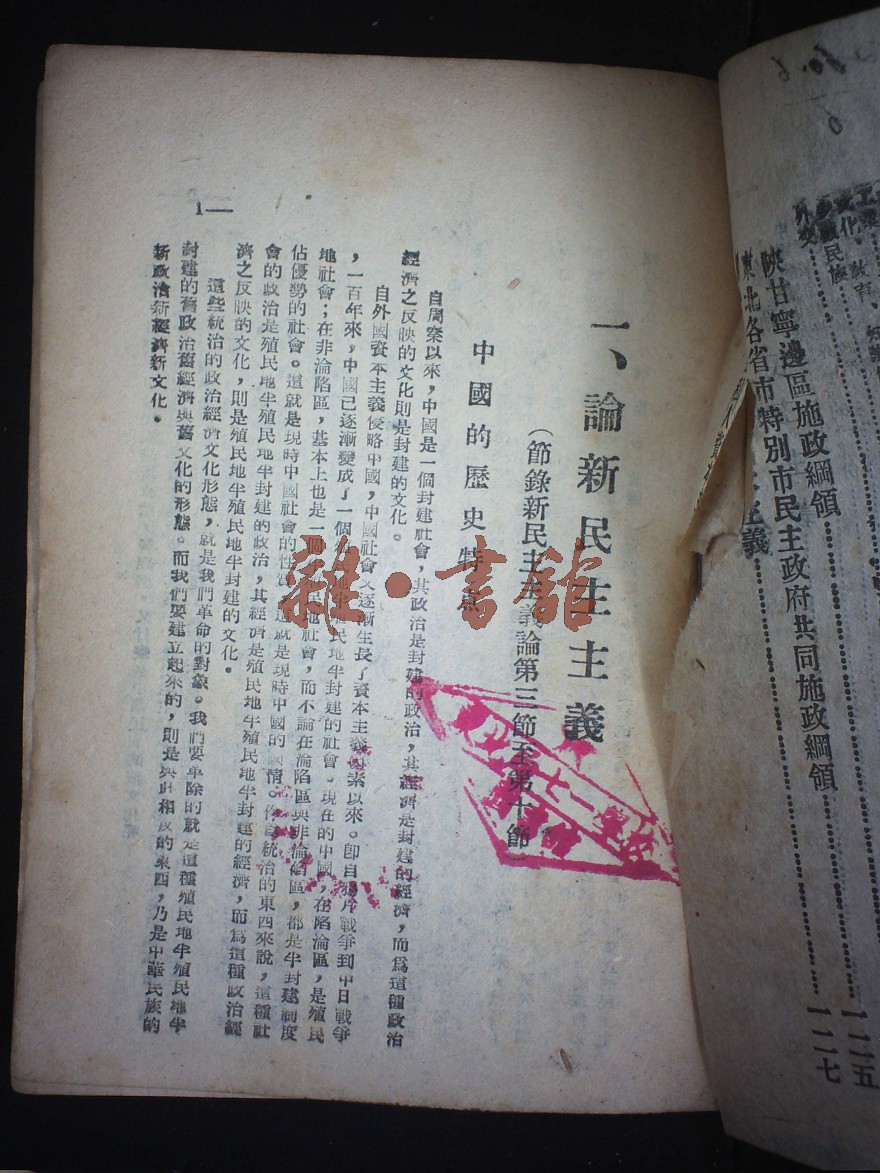 文化、教育、
民族
外交
陝甘寧邊區施政綱領……………一一五
東北各省市特別市民主政府共同施政綱領……一二七
主義………
一、論新民主主義
（節錄新民主主義論第三節至第十節）
中國的歷史特點
自周秦以來，中國是一個封建社會，其政治是封建的政治，其經濟是封建的經濟，而爲這種政治
經濟之反映的文化則是封建的文化。
自外國資本主義侵略中國，中國社會又逐漸生長了資本主義因素以來。卽自鴉片戰爭到中日戰爭
，一百年來，中國已逐漸變成了一個殖民地半殖民地半封建的社會。現在的中國，在陷淪區，是殖民
地社會；在非淪陷區，基本上也是一個半殖民地社會，而不論在淪陷區與非淪陷區，都是半封建制度
佔優勢的社會。這就是現時中國社會的性質，這就是現時中國的國情。作爲統治的東西來說，這種社
會的政治是殖民地半殖民地半封建的政治，其經濟是殖民地半殖民地半封建的經濟，而爲這種政治經
濟之反映的文化，則是殖民地半殖民地半封建的文化。
這些統治的政治經濟文化形態，就是我們革命的對象。我們要革除的就是這種殖民地半殖民地半
封建的舊政治舊經濟與舊文化的形態。而我們要建立起來的，則是與此相反的東西，乃是中華民族的
新政治新經濟新文化。
1—
雜·書館